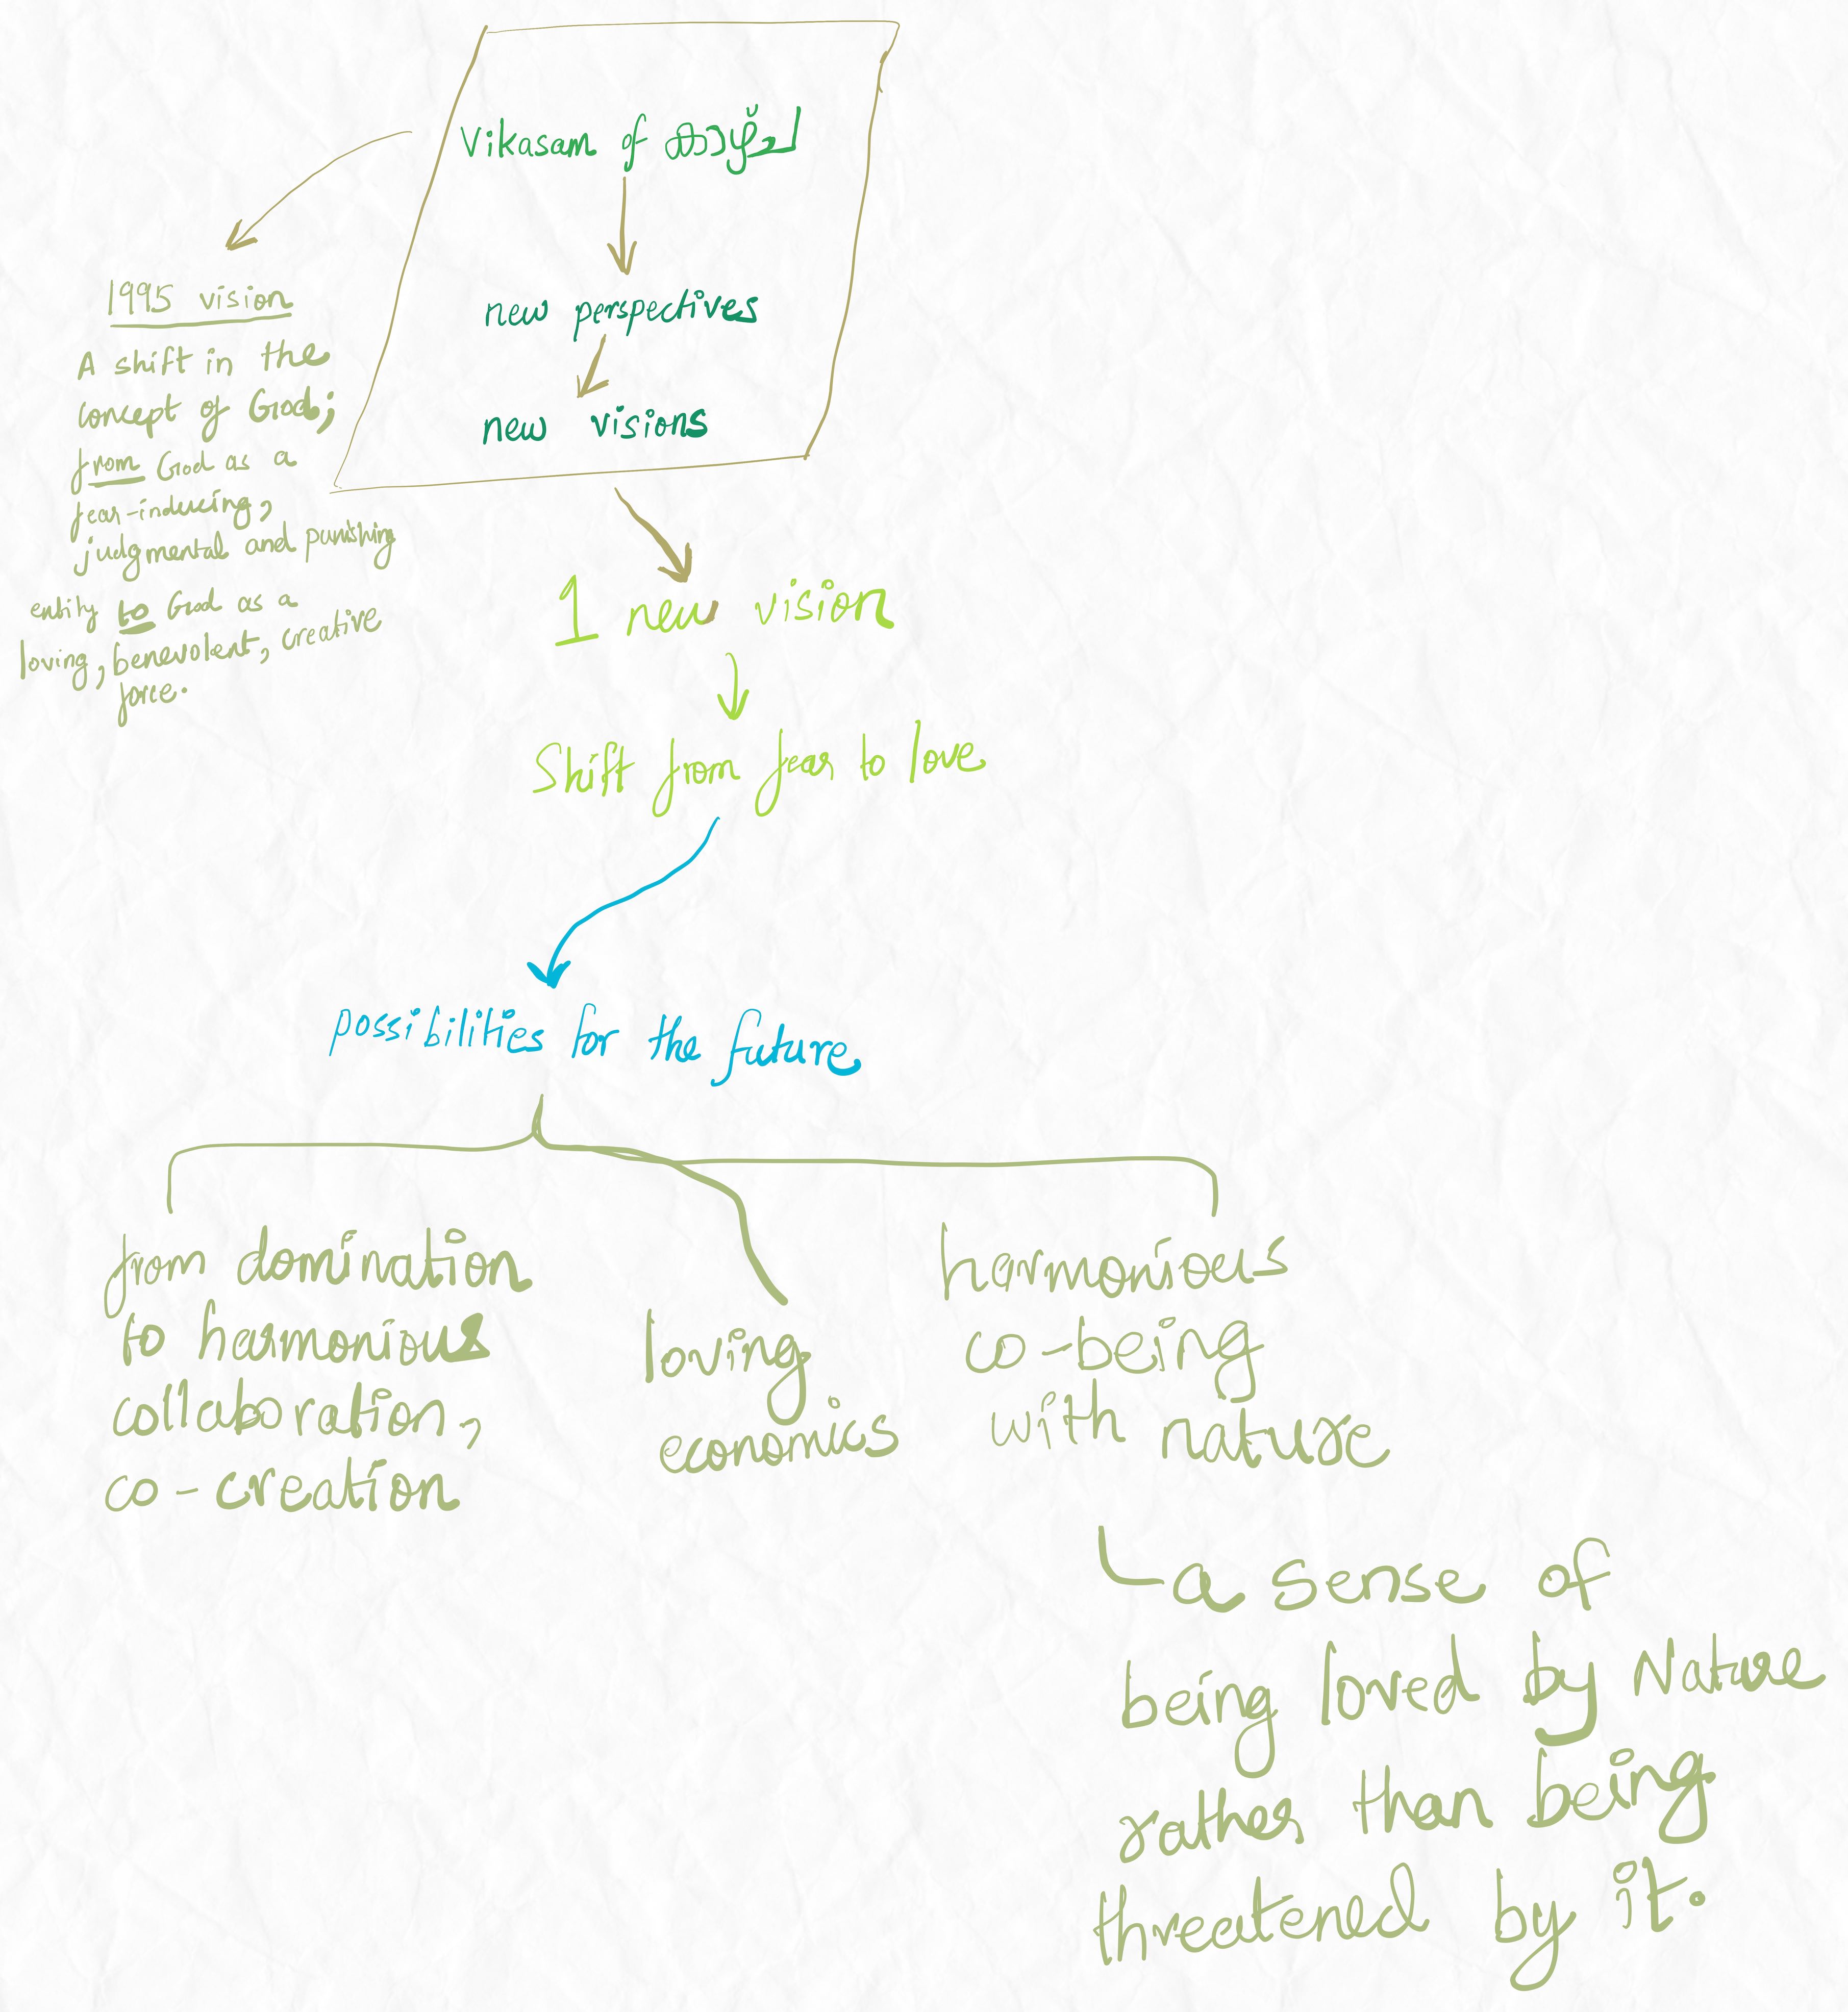 Vikasam of കാഴ്ച
new perspectives
new visions
1995 vision
A shift in the
concept of God;
from God as a
fear-inducing,
judgmental and punishing
entity to God as a
loving, benevolent, creative
force.
1 new vision
Shift from fear to love
possibilities for the future
from domination
to harmonious
collaboration,
co-creation
loving
economics
harmonious
co-being
with nature
a sense of
being loved by Nature
rather than being
threatened by it.